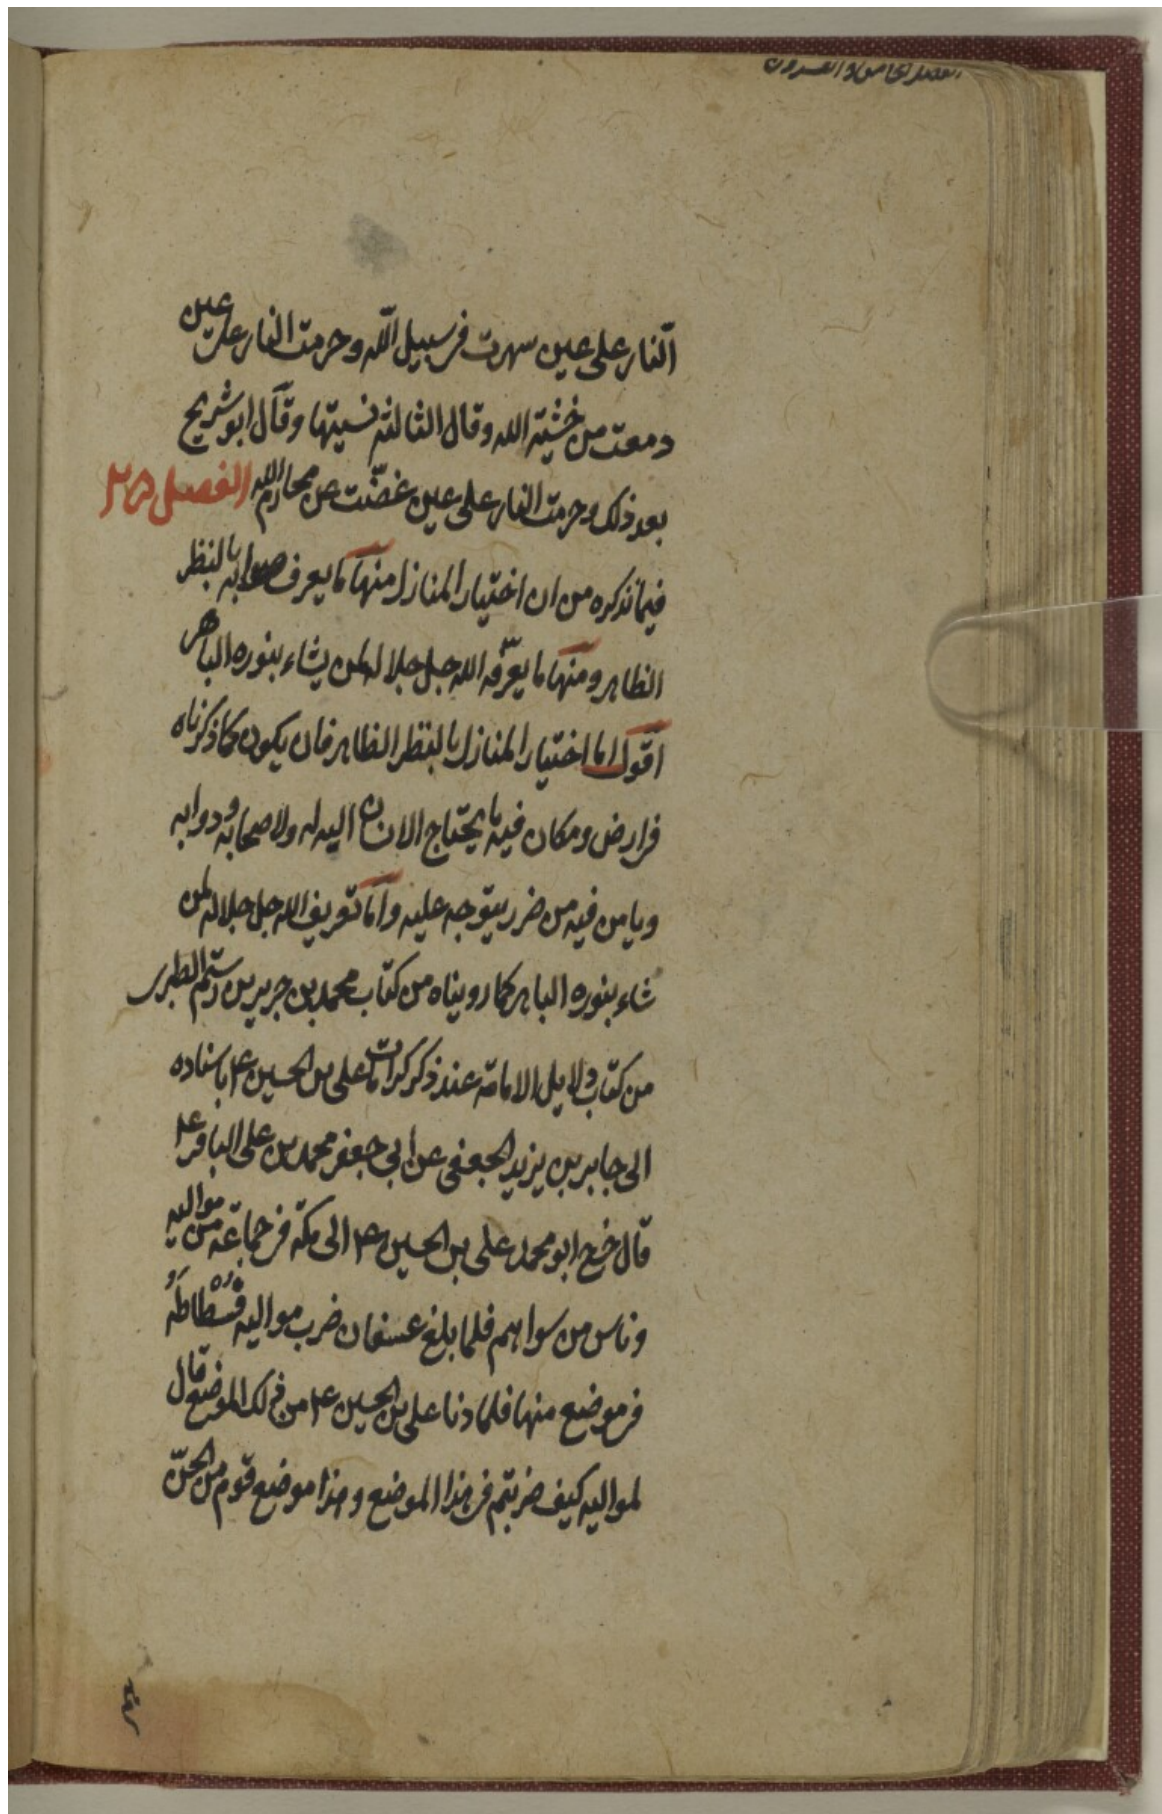 الفصل الخامس والعشرون
النار على عين سهرت فى سبيل الله وحرمت النار على عين
دمعت من خشية الله وقال الثالثة نسيتها وقال ابو شريح
بعد ذلك وحرمت النار على عين غضّت عن محارم الله الفصل ٢٥
فيما نذكره من ان اختيار المنازل منها ما يعرف صوابه بالنظر
الظاهر ومنها ما يعرّفه الله جل جلاله لمن يشاء بنوره الباهر
اقول اما اختيار المنازل بالنظر الظاهر فان يكون كما ذكرناه
فى ارض ومكان فيه ما يحتاج الانسان اليه له ولاصحابه ودوابه
ويامن فيه من ضرر يتوجه عليه واما تعريف الله جل جلاله لمن
شاء بنوره الباهر كما رويناه من كتاب محمد بن جرير بن رستم الطبرى
من كتاب دلايل الامامة عند ذكر كرامات على بن الحسين ع باسناده
الى جابر بن يزيد الجعفى عن ابى جعفر محمد بن على الباقر ع
قال خرج ابو محمد على بن الحسين ع الى مكة فى جماعة من مواليه
وناس من سواهم فلما بلغ عسفان ضرب مواليه فُسْطاطَهُ
فى موضع منها فلما دنا على بن الحسين ع من ذلك الموضع قال
لمواليه كيف ضربتم فى هذا الموضع وهذا موضع قوم من الجنّ